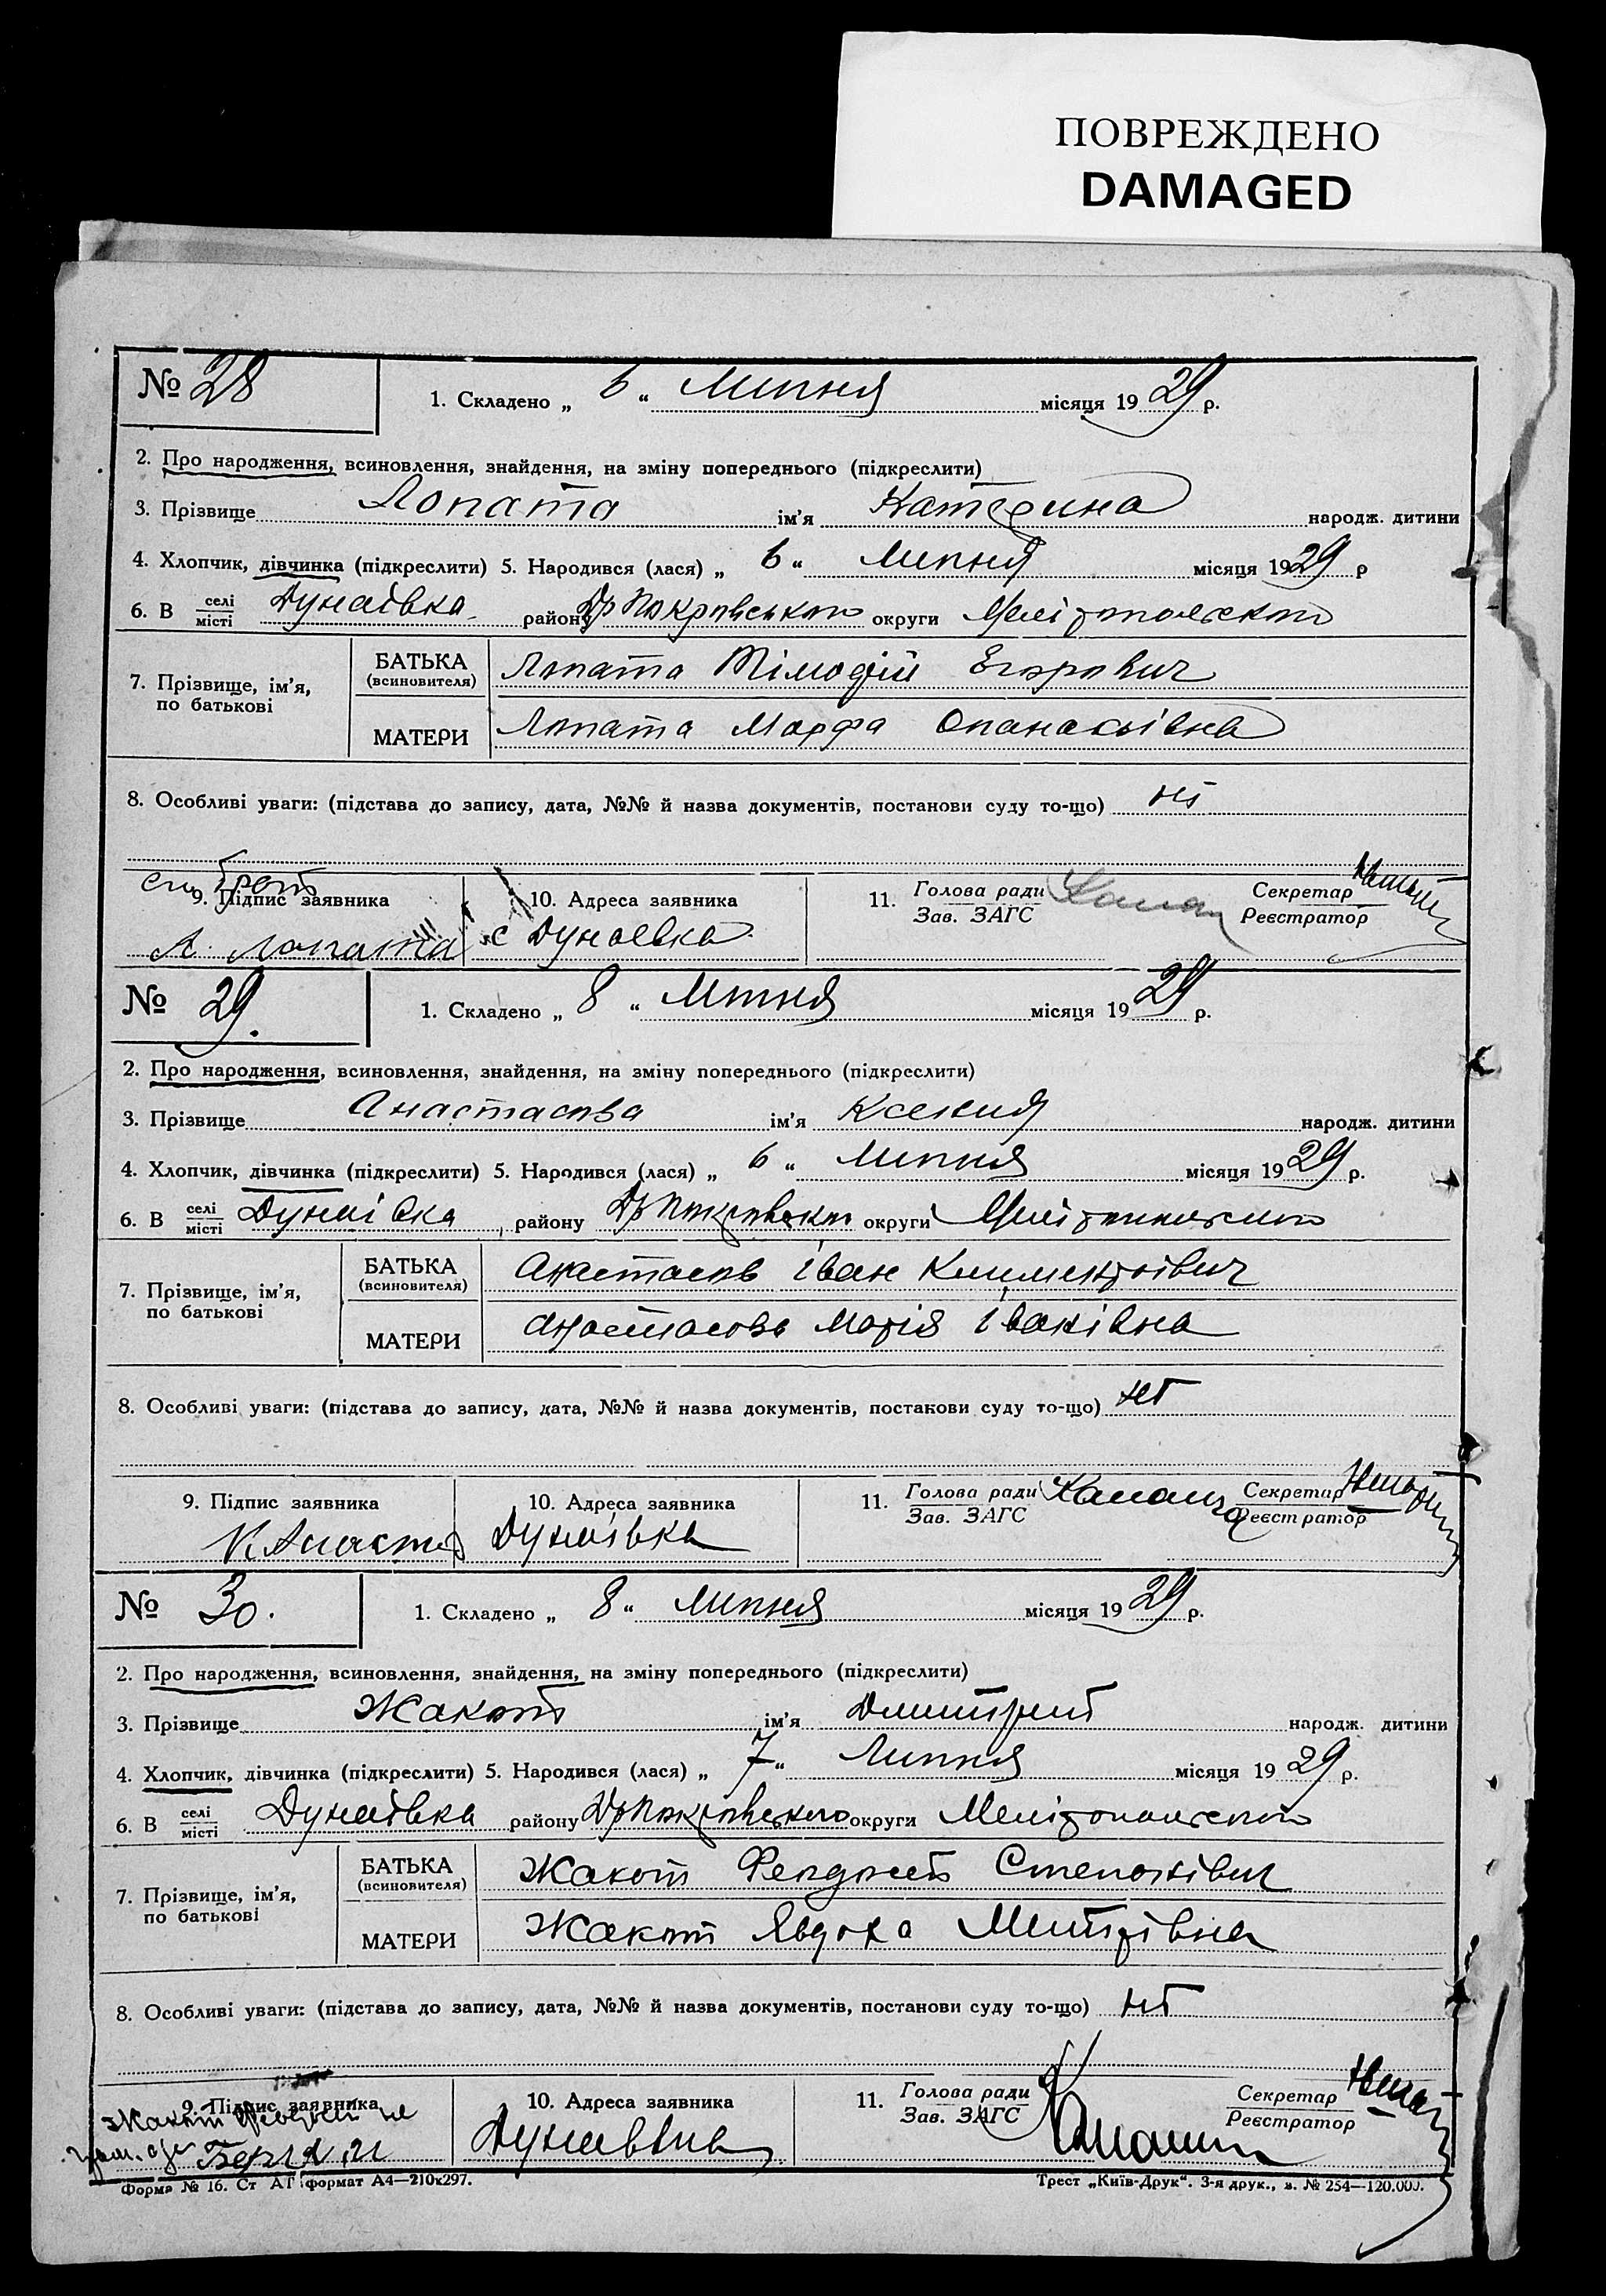 ПОВРЕЖДЕНО
DAMAGED
№ 28
1. Складено „ 6 “ Липня місяця 1929 р.
2. Про народження, всиновлення, знайдення, на зміну попереднього (підкреслити)
3. Прізвище Лопата ім’я Катерина народж. дитини
4. Хлопчик, дівчинка (підкреслити) 5. Народився (лася) „ 6 “ Липня місяця 1929 р
6. В селі місті Дунаївка району Др Покровського округи Мелітопольского
7. Прізвище, ім’я, по батькові
БАТЬКА (всиновителя) Лопата Тімофій Егорович
МАТЕРИ Лопата Марфа Опанасівна
8. Особливі уваги: (підстава до запису, дата, №№ й назва документів, постанови суду то-що) ні
9. Підпис заявника
Л. Лопата
10. Адреса заявника
с Дунаевка
11. Голова ради Зав. ЗАГС
Секретар Реєстратор
№ 29.
1. Складено „ 8 “ Липня місяця 1929 р.
2. Про народження, всиновлення, знайдення, на зміну попереднього (підкреслити)
3. Прізвище Анастасова ім’я Ксения народж. дитини
4. Хлопчик, дівчинка (підкреслити) 5. Народився (лася) „ 6 “ Липня місяця 1929 р.
6. В селі місті Дунаівка, району Др Покровского округи Мелітопольского
7. Прізвище, ім’я, по батькові
БАТЬКА (всиновителя) Анастасов Іван Климентіївич
МАТЕРИ Анастасова Марія Іванівна
8. Особливі уваги: (підстава до запису, дата, №№ й назва документів, постанови суду то-що) нет
9. Підпис заявника
10. Адреса заявника
Дунаівка
11. Голова ради Зав. ЗАГС
Секретар Реєстратор
№ 30.
1. Складено „ 8 “ Липня місяця 1929 р.
2. Про народження, всиновлення, знайдення, на зміну попереднього (підкреслити)
3. Прізвище Жакот ім’я Дмитрий народж. дитини
4. Хлопчик, дівчинка (підкреслити) 5. Народився (лася) „ 7 “ Липня місяця 1929 р.
6. В селі місті Дунаівка району Др Покровського округи Мелітопольского
7. Прізвище, ім’я, по батькові
БАТЬКА (всиновителя) Жакот Степанівич
МАТЕРИ Жакот Явдоха Митрівна
8. Особливі уваги: (підстава до запису, дата, №№ й назва документів, постанови суду то-що) нет
9. Підпис заявника
10. Адреса заявника
Дунаевка
11. Голова ради Зав. ЗАГС
Секретар Реєстратор
Форма № 16. Ст АГ формат А4—210х297.
Трест „Київ-Друк“. 3-я друк., з. № 254—120.000.